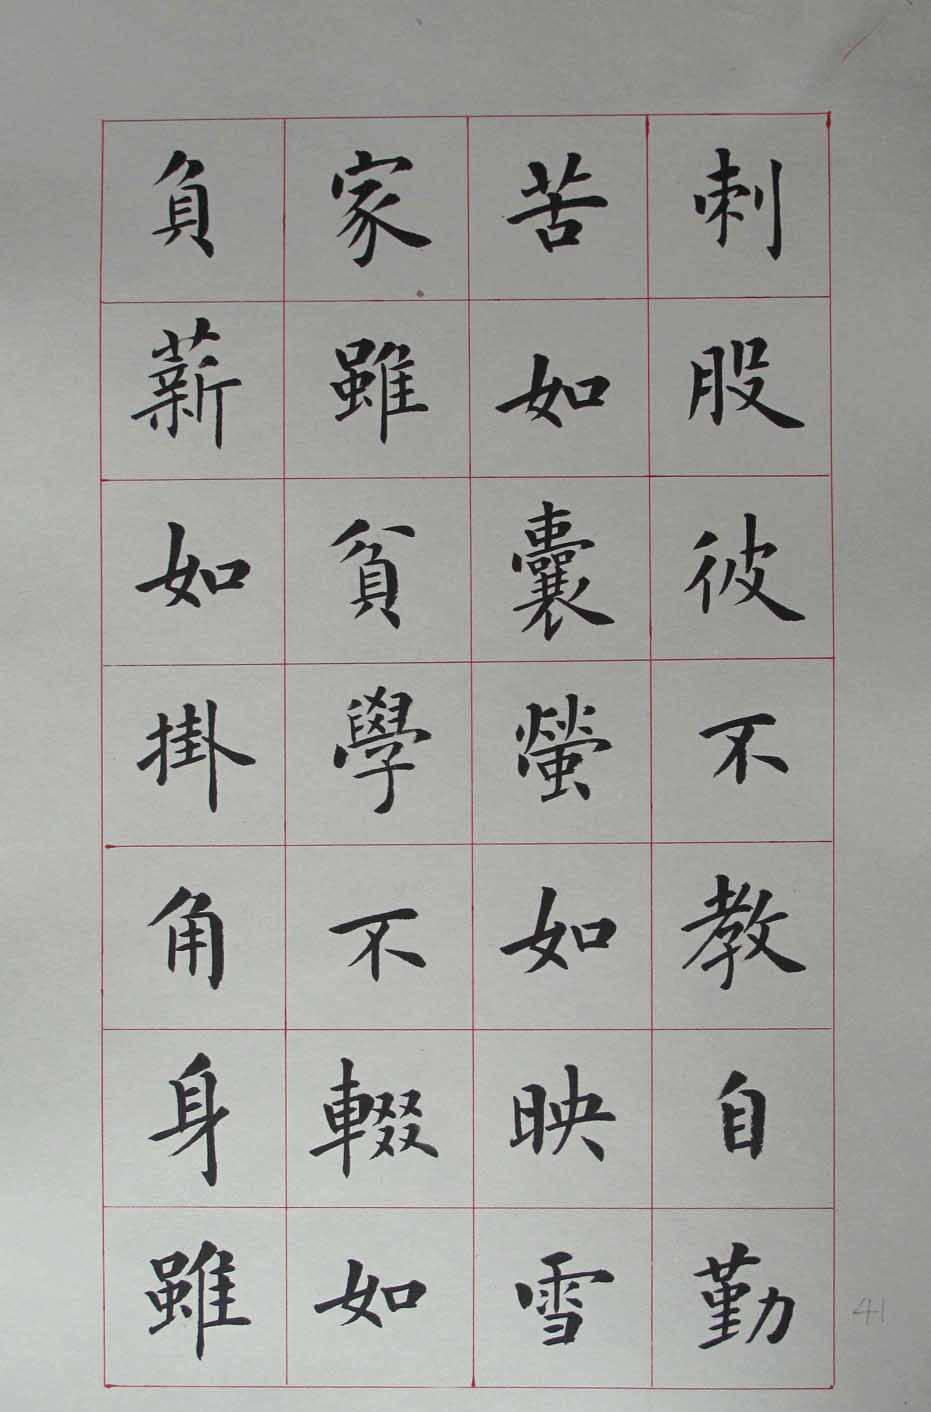 刺股彼不教自勤
苦如囊螢如映雪
家雖貧學不輟如
負薪如掛角身雖
41